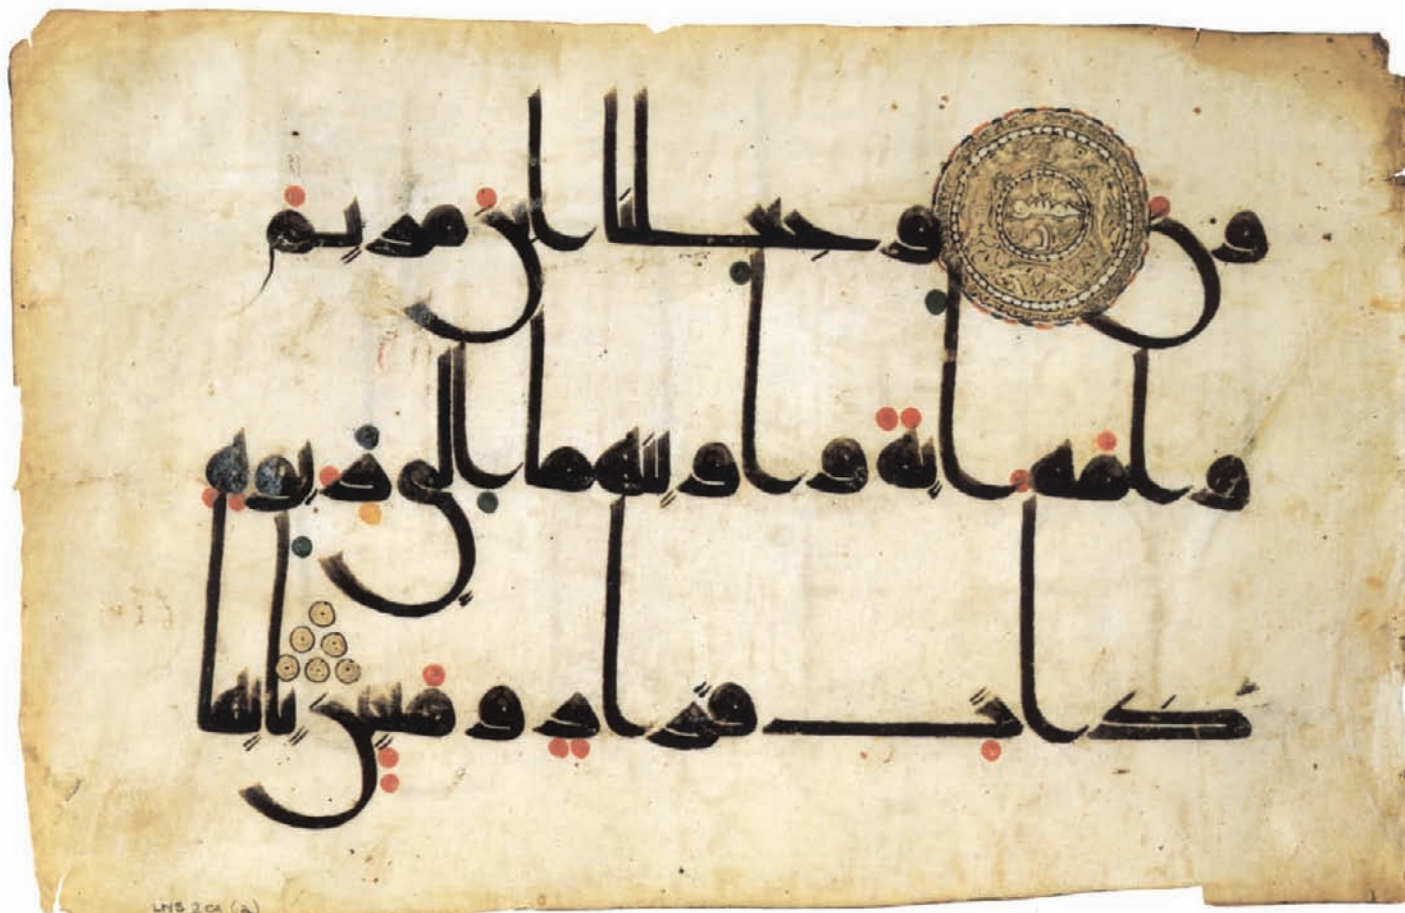 ون وجعلنا ابن مريم
وامه اية واوينهما الى ربوة
ذات قرار ومعين يايها
LNS 2 CA (a)